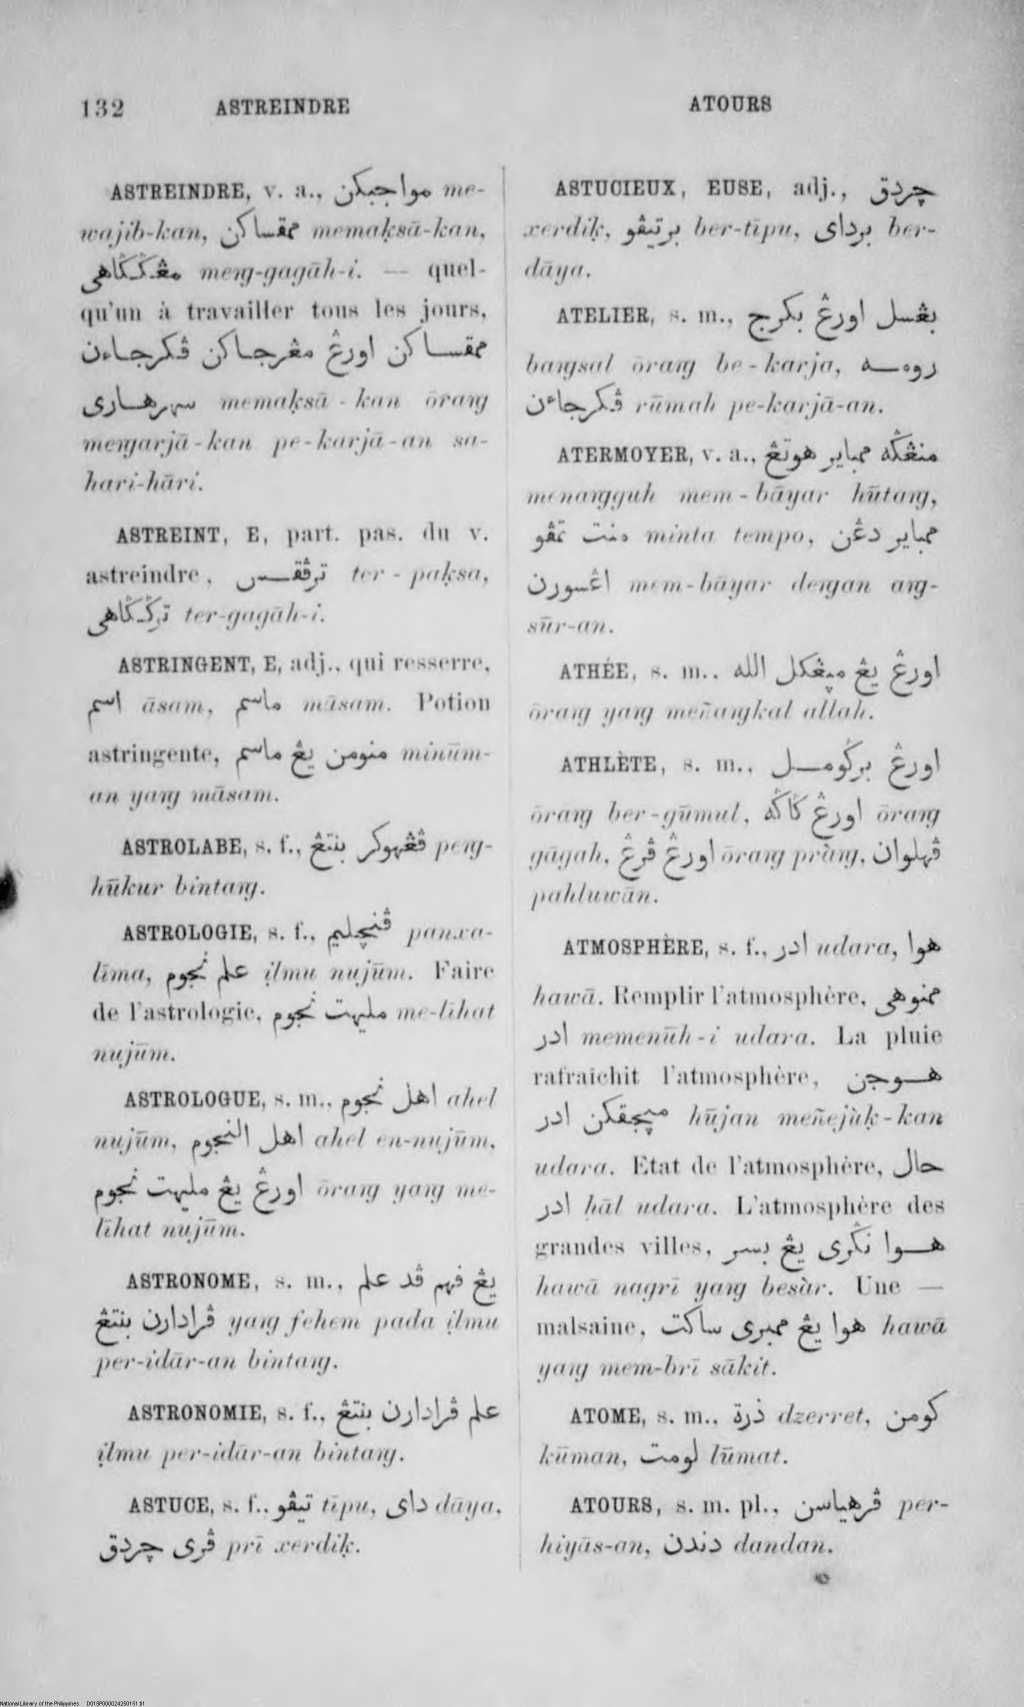 132 ASTREINDRE
ATOURS
ASTREINDRE, v. a., مواجبكن me-
wajib-kan, ممقساكن memaḳsā-kan,
مڠݢݢاهى meng-gagāh-i. — quel-
qu'un à travailler tous les jours,
ممقساكن اورڠ مڠرجاكن ڤكرجاءن
سهرهارى memaḳsā-kan ōrang
mengarjā-kan pe-karjā-an sa-
hari-hāri.
ASTREINT, E, part. pas. du v.
astreindre, ترڤقس ter-paḳsa,
ترݢݢاهى ter-gagāh-i.
ASTRINGENT, E, adj., qui resserre,
اسم āsam, ماسم māsam. Potion
astringente, منومن يڠ ماسم minūm-
an yang māsam.
ASTROLABE, s. f., ڤڠهوكر بنتڠ peng-
hūkur bintang.
ASTROLOGIE, s. f., ڤنچليم panxa-
līma, علم نجوم ilmu nujūm. Faire
de l'astrologie, مليهت نجوم me-līhat
nujūm.
ASTROLOGUE, s. m., اهل نجوم ahel
nujūm, اهل النجوم ahel en-nujūm,
اورڠ يڠ مليهت نجوم ōrang yang me-
līhat nujūm.
ASTRONOME, s. m., يڠ فهم ڤد علم
ڤرادارن بنتڠ yang fehem pada ilmu
per-idār-an bintang.
ASTRONOMIE, s. f., علم ڤرادارن بنتڠ
ilmu per-idār-an bintang.
ASTUCE, s. f., تيڤو tīpu, داى dāya,
ڤرى چردق prī xerdiḳ.
ASTUCIEUX, EUSE, adj., چردق
xerdiḳ, برتيڤو ber-tīpu, برداى ber-
dāya.
ATELIER, s. m., بڠسل اورڠ بكرج
bangsal ōrang be-karja, رومه
ڤكرجاءن rūmah pe-karjā-an.
ATERMOYER, v. a., منڠݢه ممباير هوتڠ
menangguh mem-bāyar hūtang,
منت تمڤو minta tempo, ممباير دڠن
اڠسورن mem-bāyar dengan ang-
sūr-an.
ATHÉE, s. m., اورڠ يڠ ميڠكل الله
ōrang yang meñangkal allah.
ATHLÈTE, s. m., اورڠ برݢومل
ōrang ber-gūmul, اورڠ ݢاݢه ōrang
gāgah, اورڠ ڤرڠ ōrang pràng, ڤهلوان
pahluwān.
ATMOSPHÈRE, s. f., ادر udara, هوا
hawā. Remplir l'atmosphère, ممنوهى
ادر memenūh-i udara. La pluie
rafraîchit l'atmosphère, هوجن
ميجقكن ادر hūjan meñejùk-kan
udara. Etat de l'atmosphère, حال
ادر ḥāl udara. L'atmosphère des
grandes villes, هوا نݢرى يڠ بسر
hawā nagrī yang besàr. Une —
malsaine, هوا يڠ ممبرى ساكت hawā
yang mem-brī sākit.
ATOME, s. m., ذرة dzerret, كومن
kūman, لومت lūmat.
ATOURS, s. m. pl., ڤرهياسن per-
hiyās-an, دندن dandan.
National Library of the Philippines